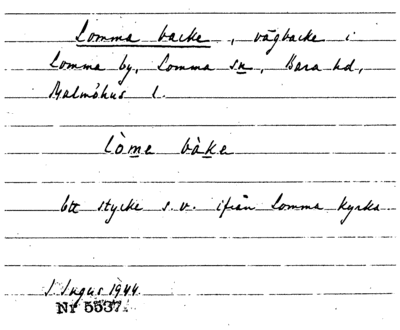 Lomma backe, vägbacke i
Lomma by, Lomma sn, Bara hd,
Malmöhus l.
lòme bàke
Ett stycke s.v. ifrån Lomma kyrka
J. Ingus 1944.
Nr 5537.